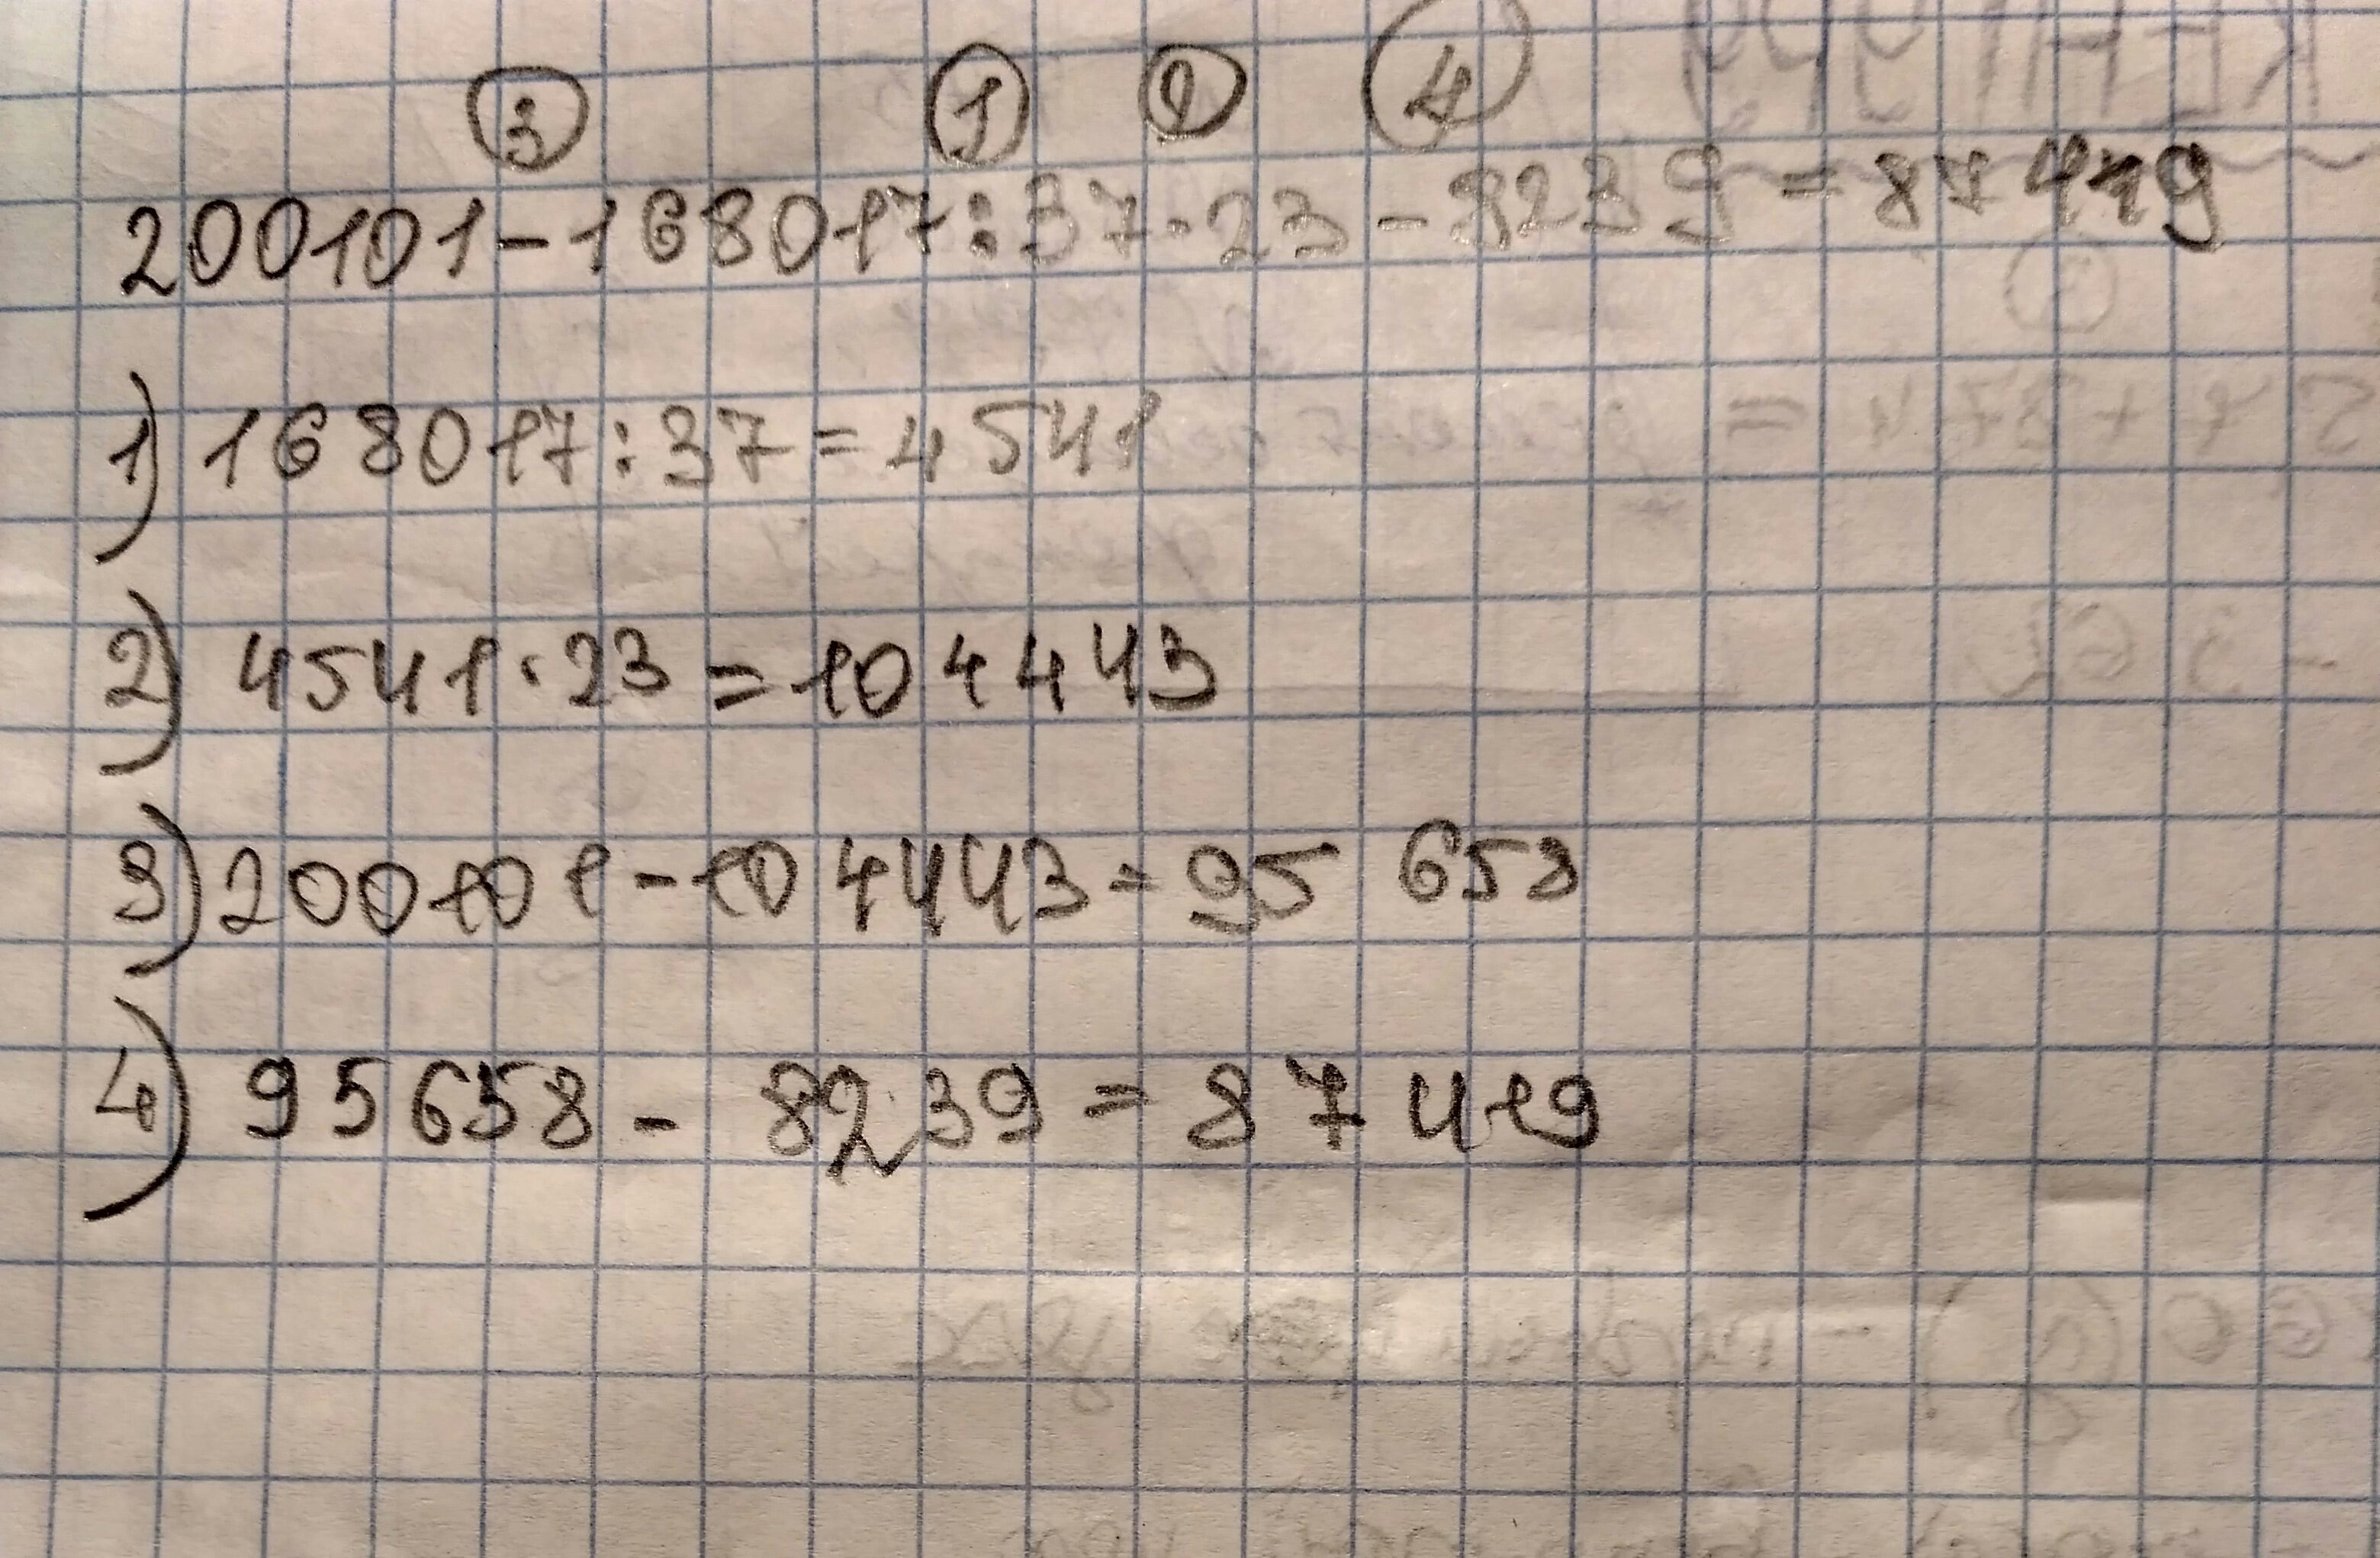 ③ ① ② ④
200101-168017:37·23-8239=87419
1) 168017:37=4541
2) 4541·23=104443
3) 200101-104443=95 658
4) 95658-8239=87419